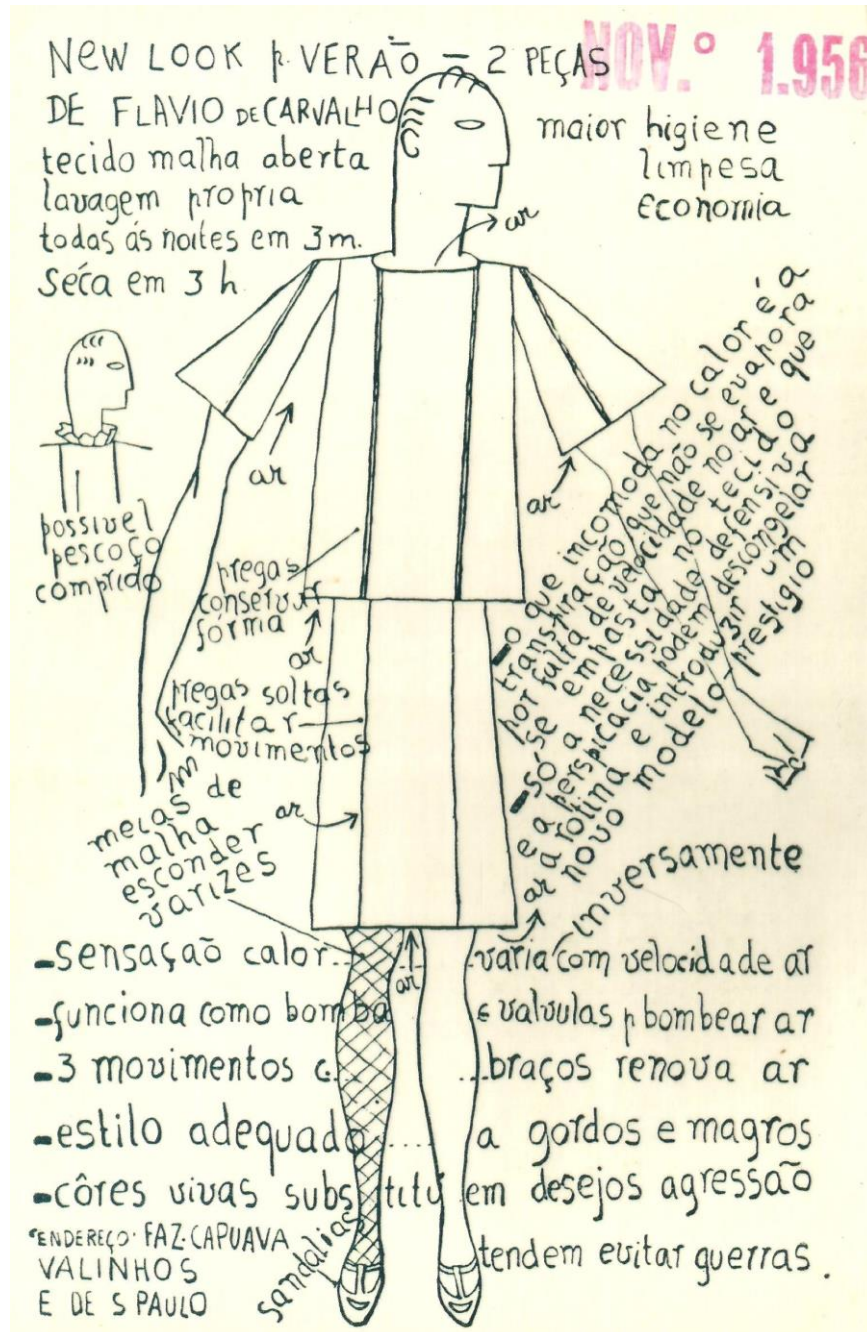 NEW LOOK p. VERAÕ – 2 PEÇAS
NOV.º 1.956
DE FLAVIO DE CARVALHO
tecido malha aberta
lavagem propria
todas ás noites em 3m.
séca em 3 h
maior higiene
limpesa
economia
ar
possivel
pescoço
comprido
ar
ar
pregas
conservar
fórma
ar
pregas soltas
facilitar
movimentos
ar
meias de
malha
esconder
varizes
-o que incomoda no calor é a
transpiração que não se evapora
por falta de velocidade no ar e que
se empasta no tecido
-só a necessidade defensiva
e a perspicacia podem descongelar
a rotina e introduzir um
novo modelo-prestigio
ar
ar
inversamente
-sensaçaõ calor... ...varia com velocidade ar
ar
-funciona como bomba c valvulas p bombear ar
-3 movimentos c... ...braços renova ar
-estilo adequado .... a gordos e magros
-côres vivas substitúem desejos agressão
tendem evitar guerras.
ENDEREÇO· FAZ·CAPUAVA
VALINHOS
E DE S PAULO
sandalias